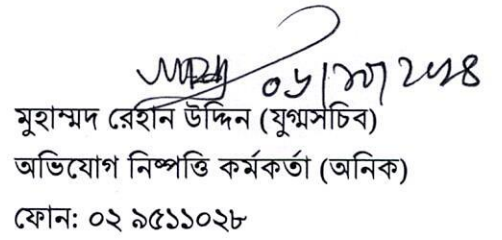 মুহাম্মদ রেহান উদ্দিন (যুগ্মসচিব)
অভিযোগ নিষ্পত্তি কর্মকর্তা (অনিক)
ফোন: ০২ ৯৫১১০২৮